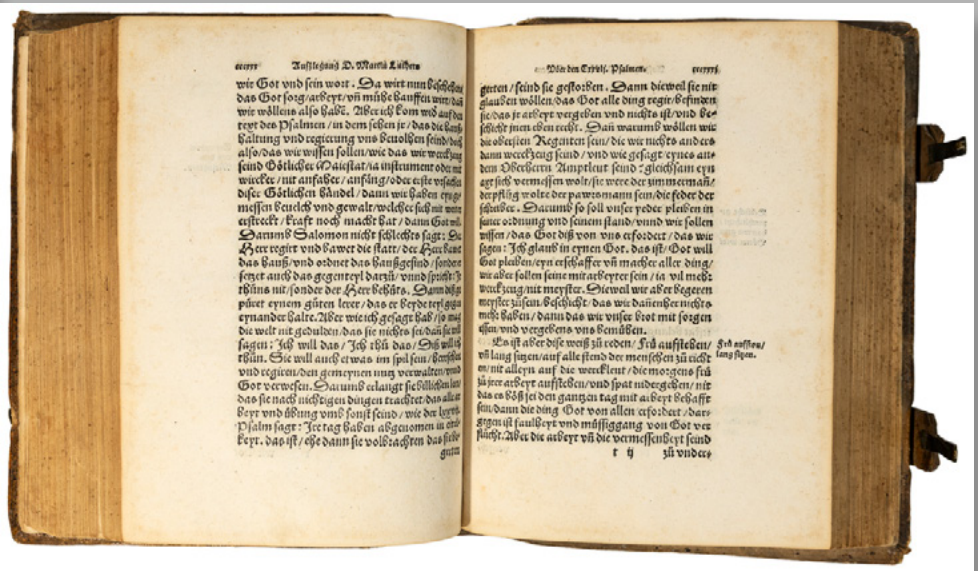 Außlegung D. Martin Luthers
wir Got vnd sein wort. Da wirt nun beschehen
das Got sorg/arbeyt/vñ mühe hauffen wirt/dañ
wir wöllens also habē. Aber ich kom wid auf den
text des Psalmen/in dem sehen jr/das die hauß
haltung vnd regierung vns beuolhen seind/doch
also/das wir wissen sollen/wie das wir werckzeug
seind Götlicher Maiestat/ia instrument oder mit
wircker/nit anfaher/anfäng/oder erste vrsacher
diser Götlichen händel/dann wir haben eyn ge
messen beuelch vnd gewalt/welcher sich nit weyter
erstreckt/krafft noch macht hat/dann Got wil.
Darumb Salomon nit schlechts sagt: Der
Herr regirt vnd bawet die statt/der Herr bawet
das hauß/vnd ordnet das haußgesind/sonder
setzet auch das gegenteyl darzů/vnnd spricht: Jr
thůns nit/sonder der Herr behüts. Dann diß ge
püret eynem gůten lerer/das er beyde teyl gegen
eynander halte. Aber wie ich gesagt hab/so mag
die welt nit gedulden/das sie nichts sei/dañ sie wil
sagen: Ich will das/Ich thů das/Diß will ich
thůn. Sie will auch etwas im spil sein/herrschen
vnd regiren/den gemeynen nutz verwalten/vnd
Got verwesen. Darumb erlangt sie billichen lon/
das sie nach nichtigen dingen trachtet/das alle ar
beyt vnd übung vmb sonst seind/wie der lxxvij.
Psalm sagt: Ire tag haben abgenomen in eytel
keyt. das ist/ehe dann sie volbrachten das sie be
gerten
Vber den Cxxvij. Psalmen.
gerten/seind sie gestorben. Dann dieweil sie nit
glauben wöllen/das Got alle ding regir/befinden
sie/das jr arbeyt vergeben vnd nichts ist/vnd be-
schicht jnen eben recht. Dañ warumb wöllen wir
die obersten Regenten sein/die wir nichts anders
dann werckzeug seind/vnd wie gesagt/eynes an-
dern Oberherrn Amptleut seind? gleichsam eyn
axt sich vermessen wolt/sie were der zimmermañ/
der pflůg wolte der pawrsmann sein/die feder der
schreiber. Darumb so soll vnser yeder pleiben in
seiner ordnung vnd seinem stand/vnnd wir sollen
wissen/das Got diß von vns erfordert/das wir
sagen: Ich glaub in eynen Got. das ist/Got will
Got pleiben/eyn erschaffer vñ macher aller ding/
wir aber sollen seine mitarbeyter sein/ia vil mehr
werckzeug/nit meyster. Dieweil wir aber begeren
meyster zůsein/beschicht/das wir dañenher nichts
mehr haben/dann das wir vnser brot mit sorgen
essen/vnd vergebens vns bemühen.
Es ist aber dise weiß zů reden/Frů aufstehen/
vñ lang sitzen/auf alle stend der menschen zů richt
en/nit alleyn auf die werckleut/die morgens frů
zů jrer arbeyt aufstehen/vnd spat nidergehen/nit
das es böß sei den gantzen tag mit arbeyt behafft
sein/dann die ding Got von allen erfordert/dar-
gegen ist faulheyt vnd müssiggang von Got ver
flůcht. Aber die arbeyt vñ die vermessenheyt seind
t ij zů vnder-
Frů aufston/
lang sitzen.